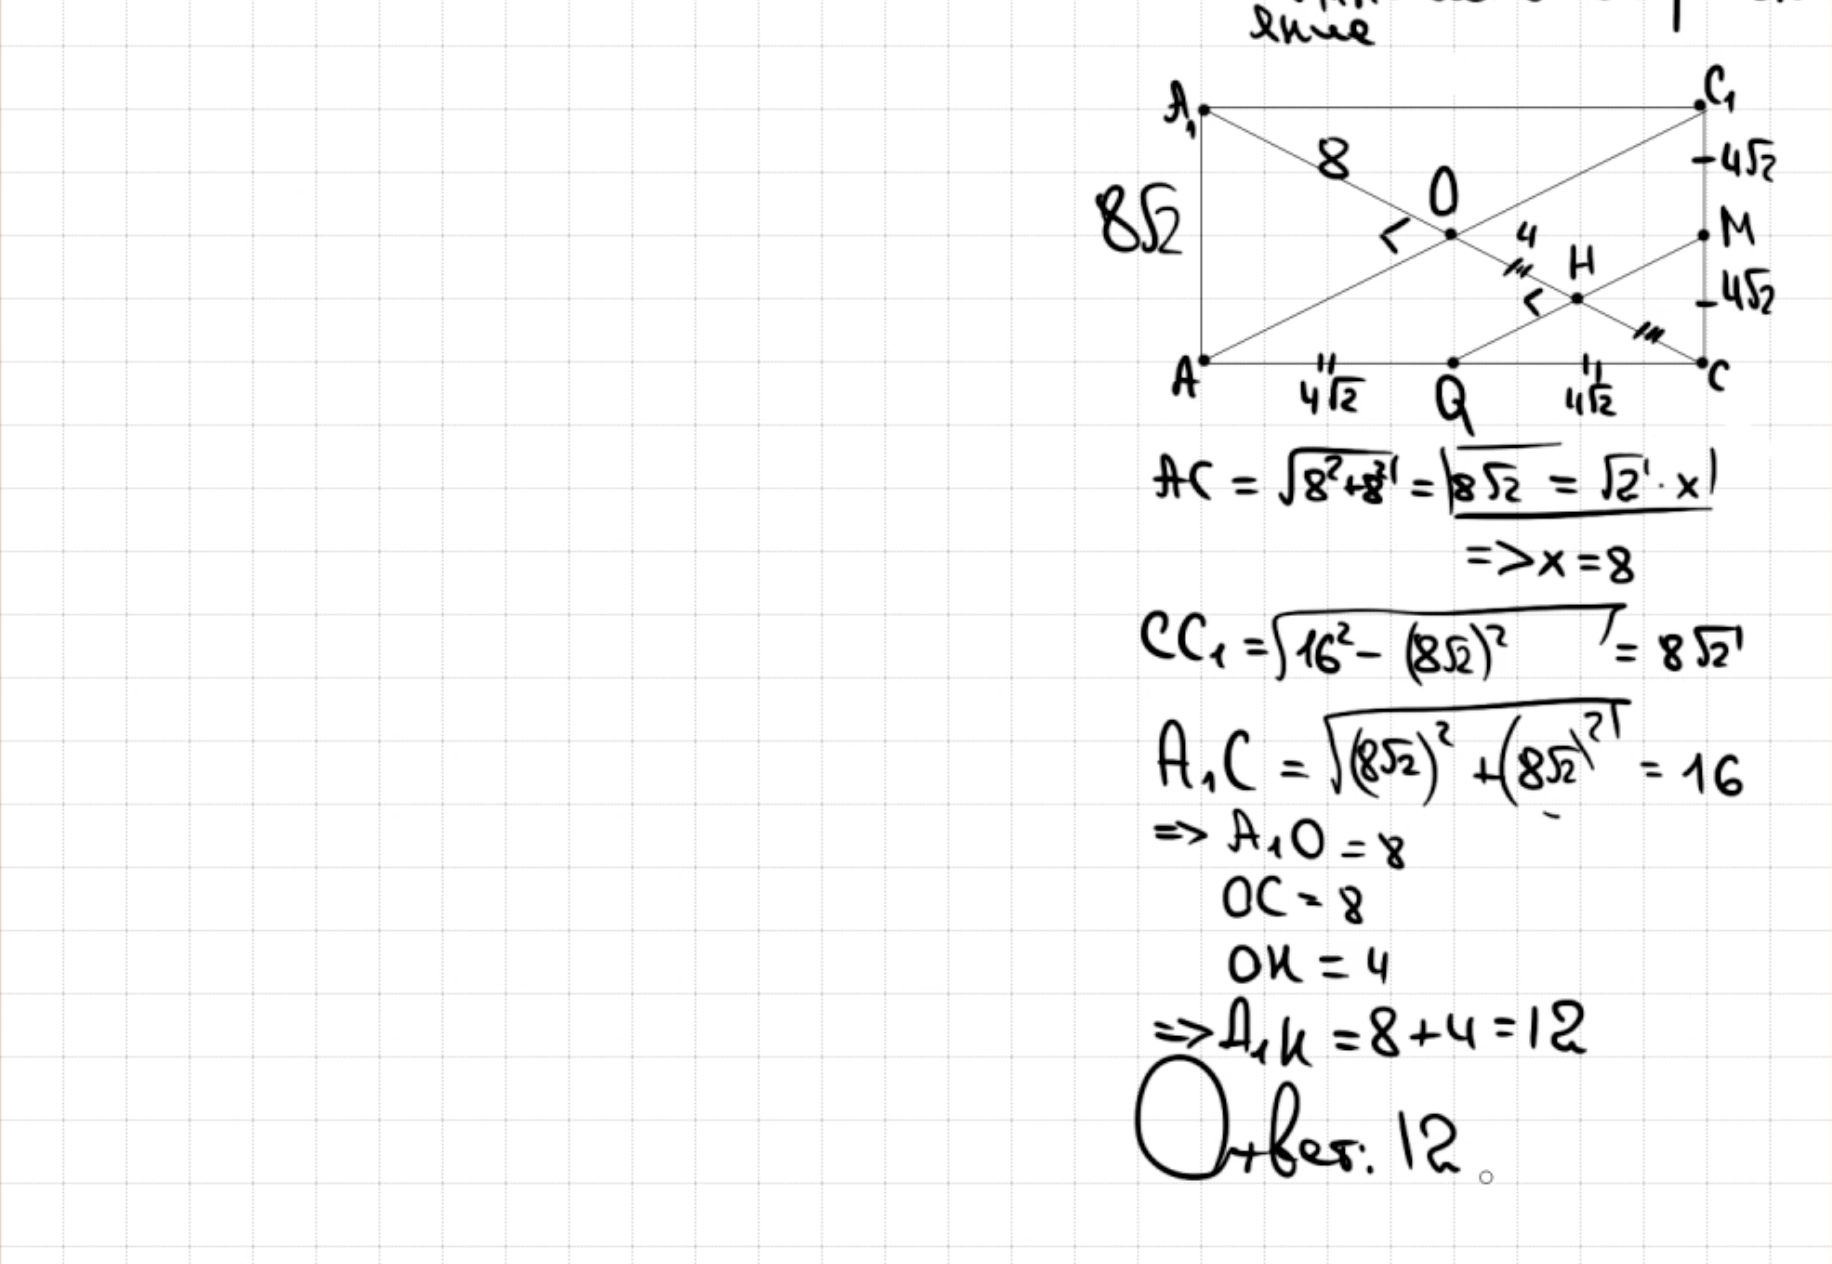 ение
A₁
C₁
8
O
4√2
8√2
4
M
H
4√2
A
4√2
Q
4√2
C
AC = √8²+8² = 8√2 = √2 · x
=> x = 8
CC₁ = √16² - (8√2)² = 8√2
A₁C = √(8√2)² + (8√2)² = 16
=> A₁O = 8
OC = 8
OH = 4
=> A₁H = 8 + 4 = 12
Ответ: 12.